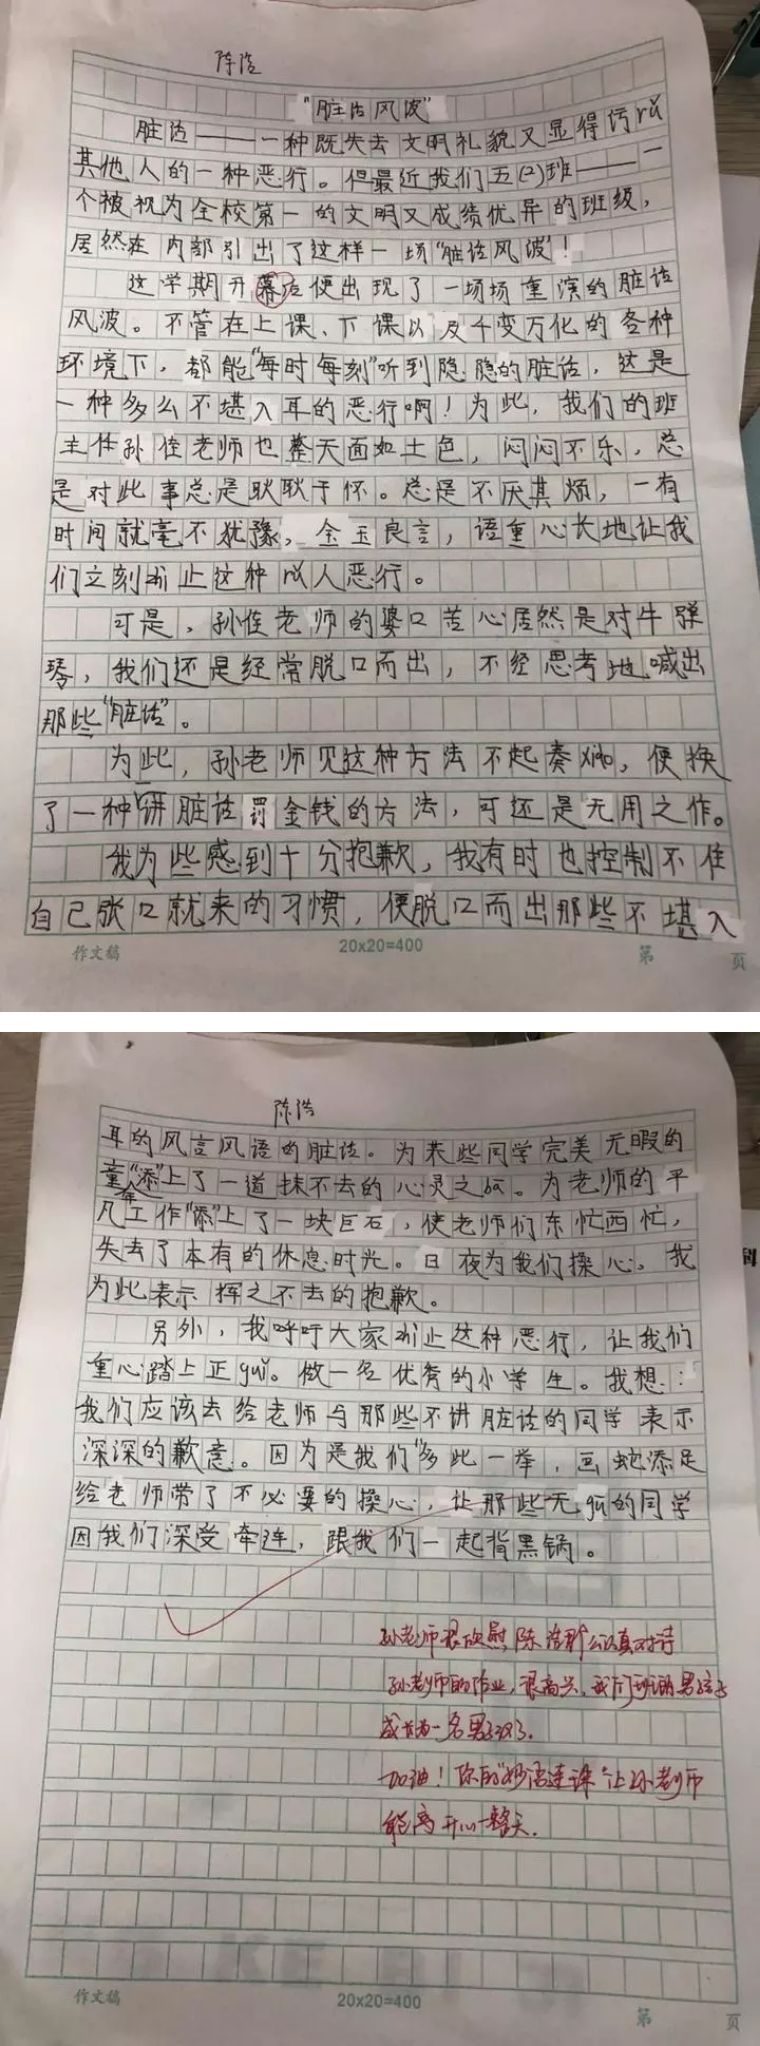 陈浩
“脏话风波”
脏话——一种既失去文明礼貌又显得污rǔ
其他人的一种恶行。但最近我们五(2)班——一
个被视为全校第一的文明又成绩优异的班级，
居然在内部引出了这样一场“脏话风波”！
这学期开幕后便出现了一场场重演的脏话
风波。不管在上课、下课以及千变万化的各种
环境下，都能“每时每刻”听到隐隐的脏话，这是
一种多么不堪入耳的恶行啊！为此，我们的班
主任孙佳老师也整天面如土色，闷闷不乐，总
是对此事总是耿耿于怀。总是不厌其烦，一有
时间就毫不犹豫，金玉良言，语重心长地让我
们立刻zhǐ止这种 人恶行。
可是，孙佳老师的婆口苦心居然是对牛弹
琴，我们还是经常脱口而出，不经思考地喊出
那些“脏话”。
为此，孙老师见这种方法不起奏xiào，便换
了一种讲脏话罚金钱的方法，可还是无用之作。
我为些感到十分抱歉，我有时也控制不住
自己张口就来的习惯，便脱口而出那些不堪入
作文稿
20x20=400
第 页
陈浩
耳的风言风语的脏话。为某些同学完美无暇的
童年“添”上了一道抹不去的心灵之 。为老师的平
凡工作“添”上了一块巨石，使老师们东忙西忙，
失去了本有的休息时光。日夜为我们操心。我
为此表示挥之不去的抱歉。
另外，我呼吁大家zhǐ止这种恶行，让我们
重心踏上正guǐ。做一名优秀的小学生。我想：
我们应该去给老师与那些不讲脏话的同学表示
深深的歉意。因为是我们“多此一举，画蛇添足
给老师带了不必要的操心，让那些无gū的同学
因我们深受牵连，跟我们一起背黑锅。
孙老师很欣慰，陈浩那么认真对待
孙老师的作业，很高兴，我们班的男孩子
成长为一名男子汉了.
加油！你的“妙语连珠”让孙老师
能高开心一整天.
作文稿
20x20=400
第 页